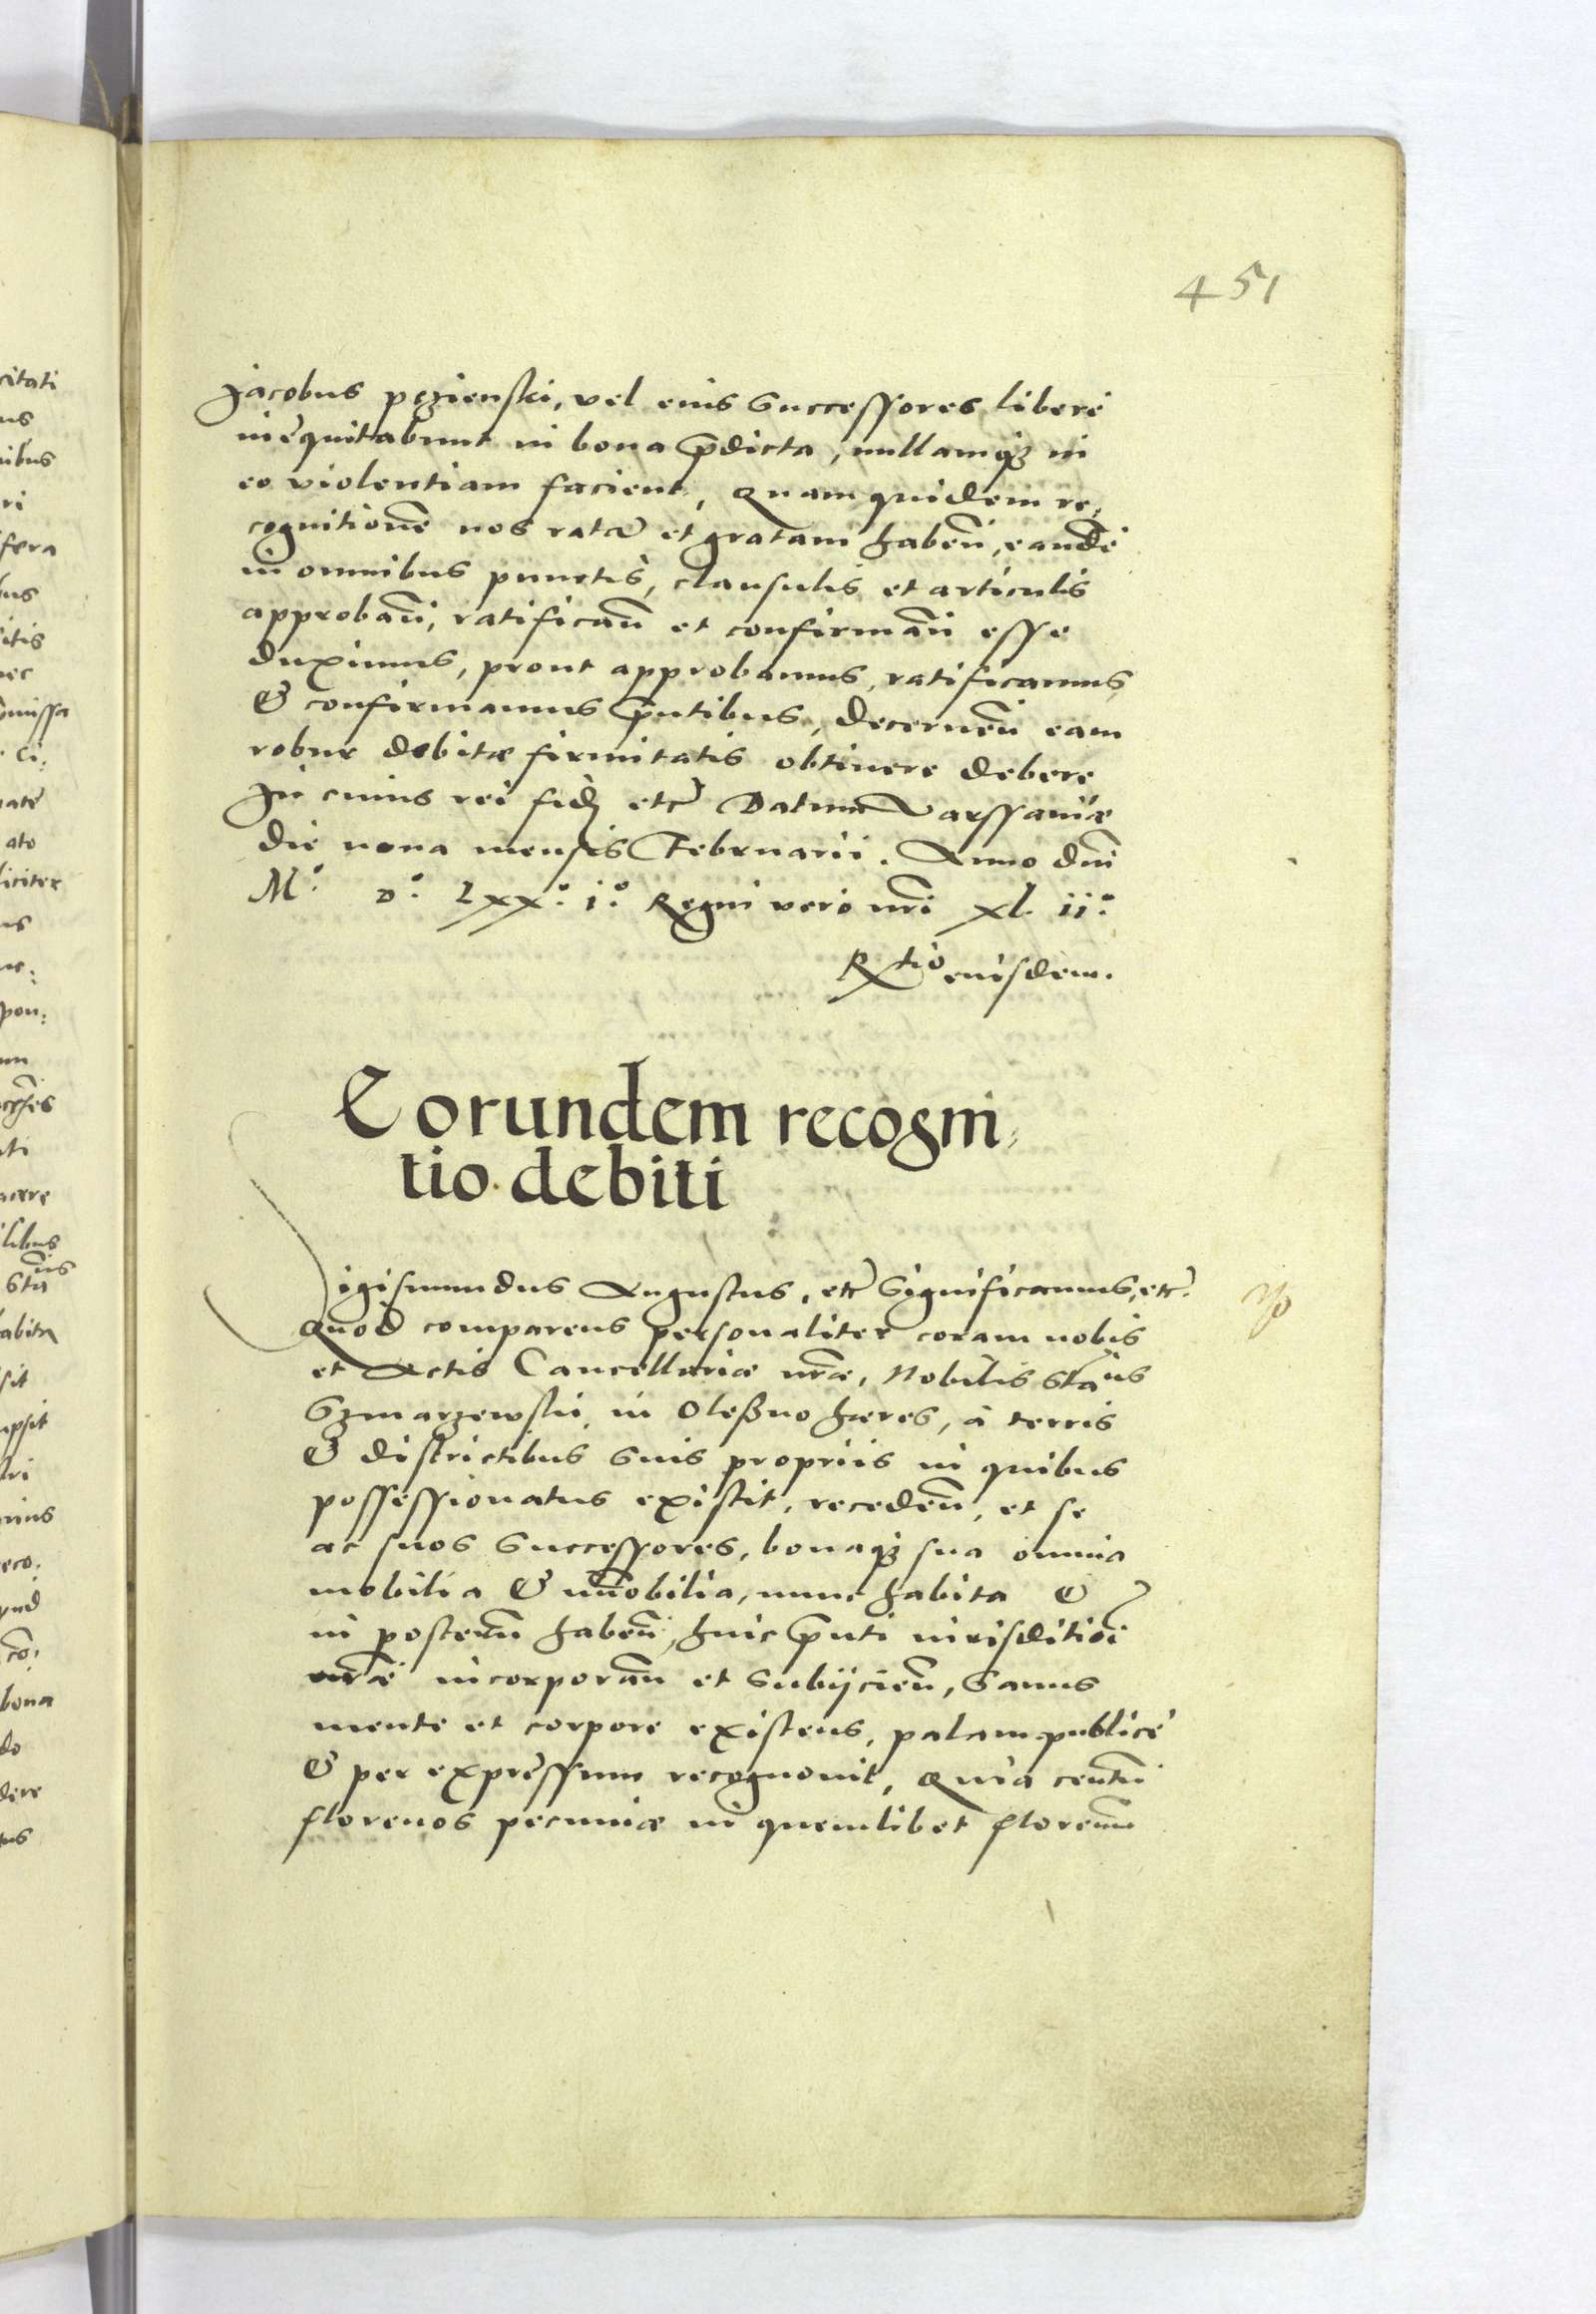 451
Jacobus pęzienski, vel eius Successores liberè
inequitabunt in bona p̄dicta, nullamqꝫ in
eo violentiam facient, Quam quidem re,
cognitionē nos ratā et gratam habeñ, eandē
in omnibus punctis, clausulis et articulis
approbañ, ratificañ et confirmañ esse
duximus, prout approbamus, ratificamus,
& confirmamus p̄ntibus, decerneñ eam
robur debitæ firmitatis obtinere debere
In cuius rei fidē etc̄ Datum Varssaviæ
die nona mensis Februarii. Anno dñi
M.° D.° Lxx.° i.° Regni vero nr̄i xl. ii.°
Rtio eiusdem.
Eorundem recogni,
tio debiti
Sigismundus Augustus, etc̄ Significamus, etc̄.
Quod comparens personaliter coram nobis
et Actis Cancellariæ nr̄æ, Nobilis Sta͞us
Szmarzewski, in Oleßno hæres, à terris
& districtibus suis propriis in quibus
possessionatus existit, recedeñ, et se
ac suos Successores, bonaqꝫ sua omnia
mobilia & im̄obilia, nunc habita &
in posterum habeñ, huic p̄nti iurisditioi
nr̄æ incorporañ et Subijcieñ, Sanus
mente et corpore existens, palam publicè
& per expressum recognovit, Quia centū
florenos pecuniæ in quemlibet florenum